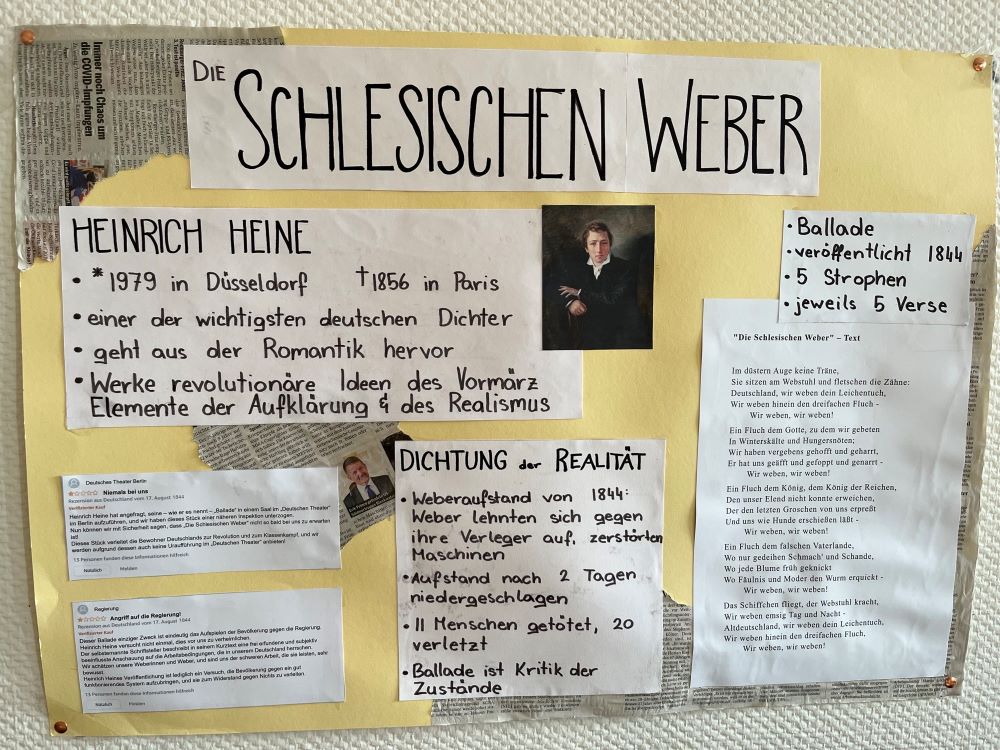 Immer noch Chaos um
die COVID-Impfungen
DIE
SCHLESISCHEN WEBER
HEINRICH HEINE
• * 1979 in Düsseldorf † 1856 in Paris
• einer der wichtigsten deutschen Dichter
• geht aus der Romantik hervor
• Werke revolutionäre Ideen des Vormärz
Elemente der Aufklärung & des Realismus
• Ballade
• veröffentlicht 1844
• 5 Strophen
• jeweils 5 Verse
"Die Schlesischen Weber" – Text
Im düstern Auge keine Träne,
Sie sitzen am Webstuhl und fletschen die Zähne:
Deutschland, wir weben dein Leichentuch,
Wir weben hinein den dreifachen Fluch -
Wir weben, wir weben!
Ein Fluch dem Gotte, zu dem wir gebeten
In Winterskälte und Hungersnöten;
Wir haben vergebens gehofft und geharrt,
Er hat uns geäfft und gefoppt und genarrt -
Wir weben, wir weben!
Ein Fluch dem König, dem König der Reichen,
Den unser Elend nicht konnte erweichen,
Der den letzten Groschen von uns erpreßt
Und uns wie Hunde erschießen läßt -
Wir weben, wir weben!
Ein Fluch dem falschen Vaterlande,
Wo nur gedeihen Schmach' und Schande,
Wo jede Blume früh geknickt
Wo Fäulnis und Moder den Wurm erquickt -
Wir weben, wir weben!
Das Schiffchen fliegt, der Webstuhl kracht,
Wir weben emsig Tag und Nacht -
Altdeutschland, wir weben dein Leichentuch,
Wir weben hinein den dreifachen Fluch,
Wir weben, wir weben!
Deutsches Theater Berlin
Niemals bei uns
Rezension aus Deutschland vom 17. August 1844
Verifizierter Kauf
Heinrich Heine hat angefragt, seine – wie er es nennt – „Ballade" in einem Saal im „Deutschen Theater"
im Berlin aufzuführen, und wir haben dieses Stück einer näheren Inspektion unterzogen.
Nun können wir mit Sicherheit sagen, dass „Die Schlesischen Weber" nicht so bald bei uns zu erwarten
ist!
Dieses Stück verleitet die Bewohner Deutschlands zur Revolution und zum Klassenkampf, und wir
werden aufgrund dessen auch keine Uraufführung im „Deutschen Theater" anbieten!
13 Personen fanden diese Informationen hilfreich
Nützlich Melden
Regierung
Angriff auf die Regierung!
Rezension aus Deutschland vom 17. August 1844
Verifizierter Kauf
Dieser Ballade einziger Zweck ist eindeutig das Aufspielen der Bevölkerung gegen die Regierung.
Heinrich Heine versucht nicht einmal, dies vor uns zu verheimlichen.
Der selbsternannte Schriftsteller beschreibt in seinem Kurztext eine erfundene und subjektiv
beeinflusste Anschauung auf die Arbeitsbedingungen, die in unserem Deutschland herrschen.
Wir schätzen unsere Weberinnen und Weber, und sind uns der schweren Arbeit, die sie leisten, sehr
bewusst.
Heinrich Heines Veröffentlichung ist lediglich ein Versuch, die Bevölkerung gegen ein gut
funktionierendes System aufzubringen, und sie zum Widerstand gegen Nichts zu verleiten.
13 Personen fanden diese Informationen hilfreich
Nützlich Melden
DICHTUNG der REALITÄT
• Weberaufstand von 1844:
Weber lehnten sich gegen
ihre Verleger auf, zerstörten
Maschinen
• Aufstand nach 2 Tagen
niedergeschlagen
• 11 Menschen getötet, 20
verletzt
• Ballade ist Kritik der
Zustände